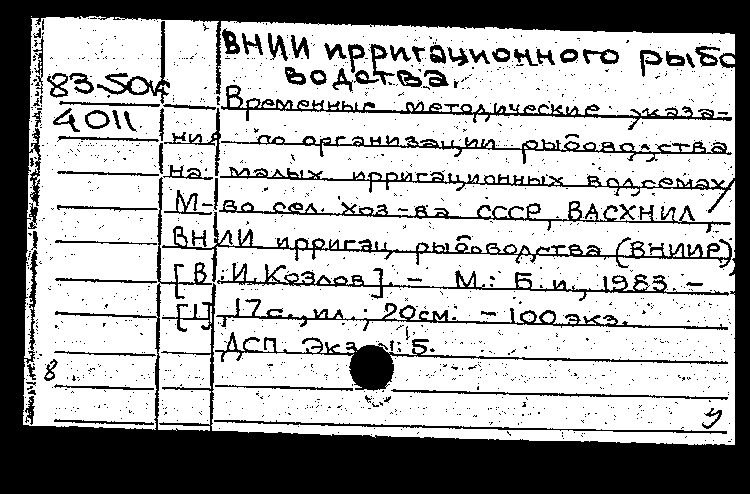 ВНИИ ирригационного рыбо
водства.
83-50к
4011
Временные методические указа-
ния по организации рыбоводства
на малых ирригационных водоемах/
М-во сел. хоз-ва СССР, ВАСХНИЛ,
ВНИИ ирригац. рыбоводства (ВНИИР);
[В.И. Козлов]. - М.: Б.и., 1983. -
[1], 17с., ил.; 20см. - 100 экз.
ДСП. Экз. N: 5.
8
у